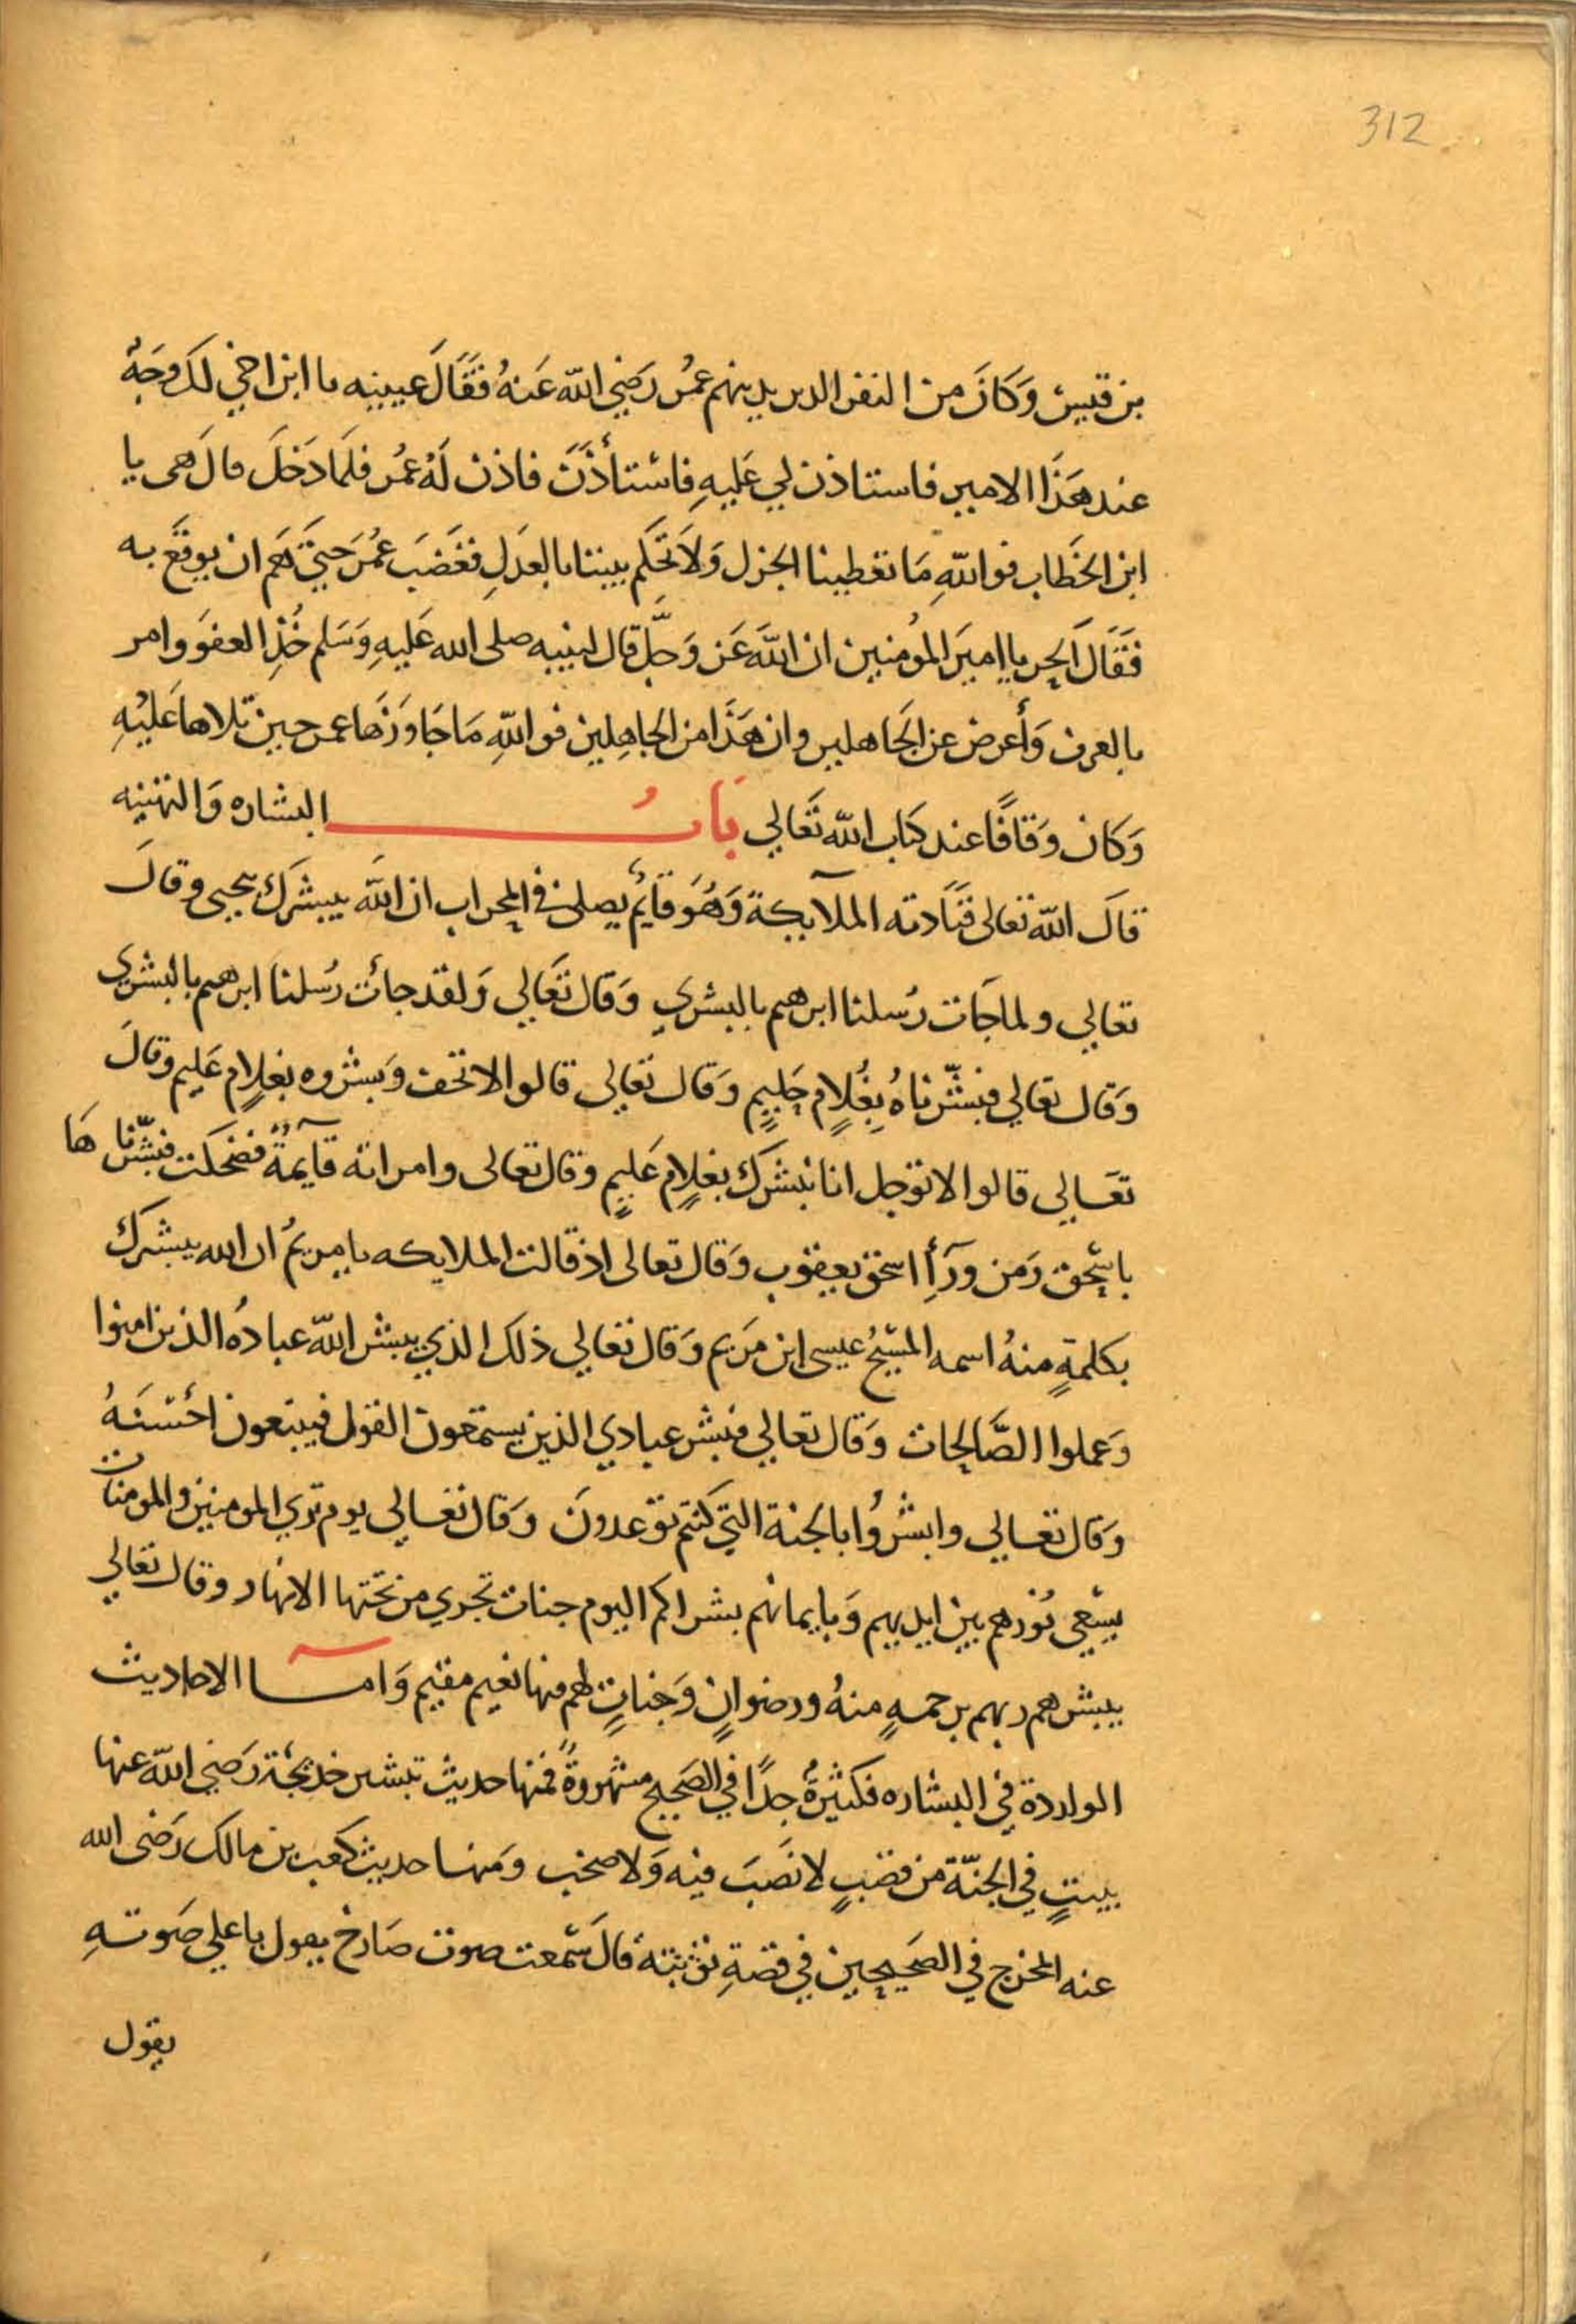 312
بن قيس وَكَانَ من النفر الدين يدينهم عمُر رَضي الله عَنهُ فَقَالَ عيينه يا ابن اخي لَكَ وجَهٌ
عند هَذَا الامير فاستاذن لي عَليهِ فاسْتأذَنَ فاذن لَهُ عمُر فلمَا دَخلَ قالَ هى يا
ابن الخَطاب فو اللهِ مَا تعَطينا الجزل وَلاَ تَحكم بيننا بالعَدَلِ فغَضَبَ عمُر حَتيَ هَم ان يوقعَ به
فَقَالَ الحر يا اميَر المؤمنين ان اللهَ عَز وَجلّ قال لنبيه صلى الله عَليهِ وَسَلم خُذِ العفوَ وامر
بالعرف وَأعرض عن الجَاهلين وان هَذَا من الجاهِلين فو اللهِ مَا جَاوَزهَا عمر حين تلاها عَليْهِ
وَكان وَقافًا عند كتاب الله تَعَالي بَابُ البشاره وَالتهنيه
قالَ الله تعالى فنَادته الملآيكة وَهُوَ قآيمٌ يصلى في المحراب ان اللهَ يبشرك بيحيى وقالَ
تعالي ولما جَات رُسلنا ابرهيم بالبشري وَقال تعَالي وَلقد جائت رُسلنا ابرهيم بالبشري
وَقال تعالي فبشّرناهُ بِغُلامٍ حَلِيمٍ وَقال تعالى قالوا لا تخف وَبشروه بغلامٍ عَليم وقالَ
تعَالي قالوا لا توجل انا نبشرك بغلامٍ عَليمٍ وقال تعالى وامراته قآيمةٌ فضحَكت فبشّرنا هَا
باسْحٰق وَمن ورَآِ اسحٰق يعقوب وَقال تعالى اذ قالت الملايكه يا مريمُ ان الله يبشرك
بكلمةٍ منهُ اسمه المسَيحُ عيسى ابن مَريم وَقال تعالي ذلك الذي يبشر اللهُ عبادهُ الذين امنوا
وَعملوا الصَّالِحات وَقال تعالي فبشر عبادي الذين يستمَعون القول فيتبعون احْسَنَهُ
وَقال تعَالي وابشرُوا بالجنة التي كنتم توَعدونَ وَقال تعَالي يوم تري المومنين والمومنات
يسَعي نُورهم بين ايديهم وَبايمانهم بشراكم اليوم جنات تجري من تحَتها الانهار وقال تعالي
يبشرهم ربهم برحمهٍ منهُ ورضوانٍ وَجناتٍ لهم فيها نعيم مقيم وَامـا الاحاديث
الواردة في البشاره فكثيرةٌ جدًا في الصَحيح مشهروةٌ فمنها حديث تبشير خديجَة رَضي الله عنها
ببيتٍ في الجنّة من قصَبٍ لا نصَبَ فيه وَلا صخب ومَنها حديث كعَب بن مالك رَضى الله
عنه المخرج في الصَحيحين في قصةِ توْبته قالَ سَمعت صوت صَارخ يقول باعلي صَوتهِ
يقول